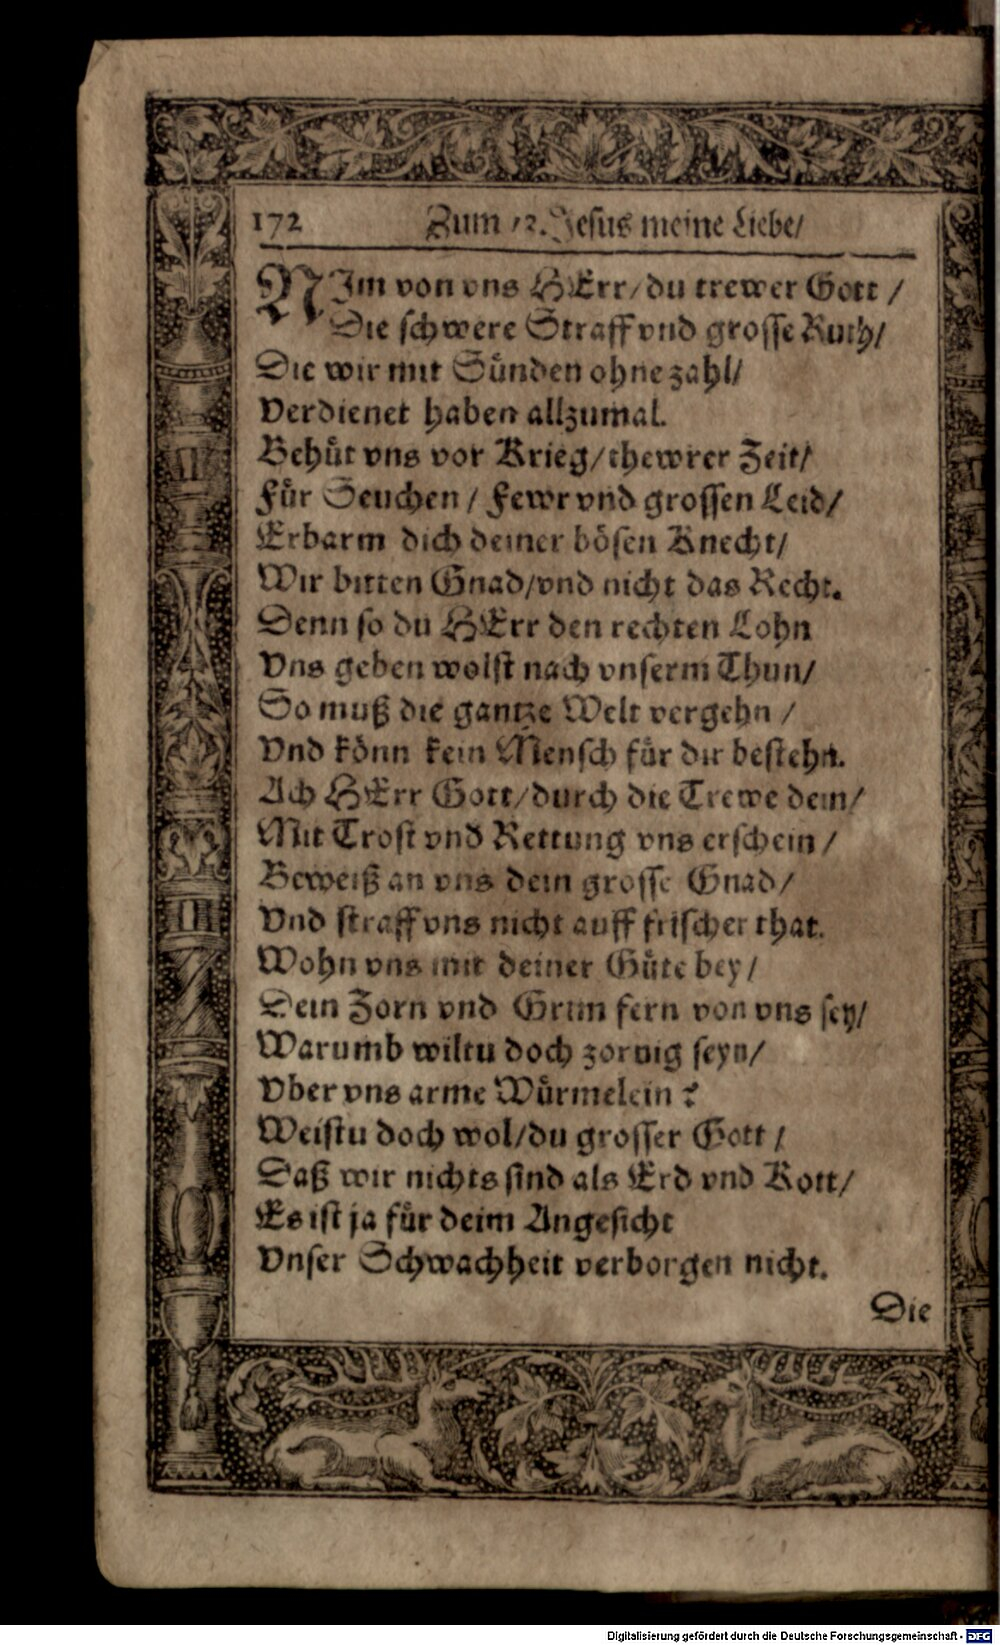 172 Zum 12. Jesus meine Liebe/
NIm von vns HErr/du trewer Gott /
Die schwere Straff vnd grosse Ruth/
Die wir mit Sünden ohne zahl/
Verdienet haben allzumal.
Behüt vns vor Krieg/thewrer Zeit/
Für Seuchen / Fewr vnd grossen Leid/
Erbarm dich deiner bösen Knecht/
Wir bitten Gnad/vnd nicht das Recht.
Denn so du HErr den rechten Lohn
Vns geben wolst nach vnserm Thun/
So muß die gantze Welt vergehn /
Vnd könn kein Mensch für dir bestehn.
Ach HErr Gott/durch die Trewe dein/
Mit Trost vnd Rettung vns erschein /
Beweiß an vns dein grosse Gnad/
Vnd straff vns nicht auff frischer that.
Wohn vns mit deiner Güte bey/
Dein Zorn vnd Grim fern von vns sey/
Warumb wiltu doch zornig seyn/
Vber vns arme Würmelein ?
Weistu doch wol/du grosser Gott /
Daß wir nichts sind als Erd vnd Kott/
Es ist ja für deim Angesicht
Vnser Schwachheit verborgen nicht.
Die
Digitalisierung gefördert durch die Deutsche Forschungsgemeinschaft - DFG